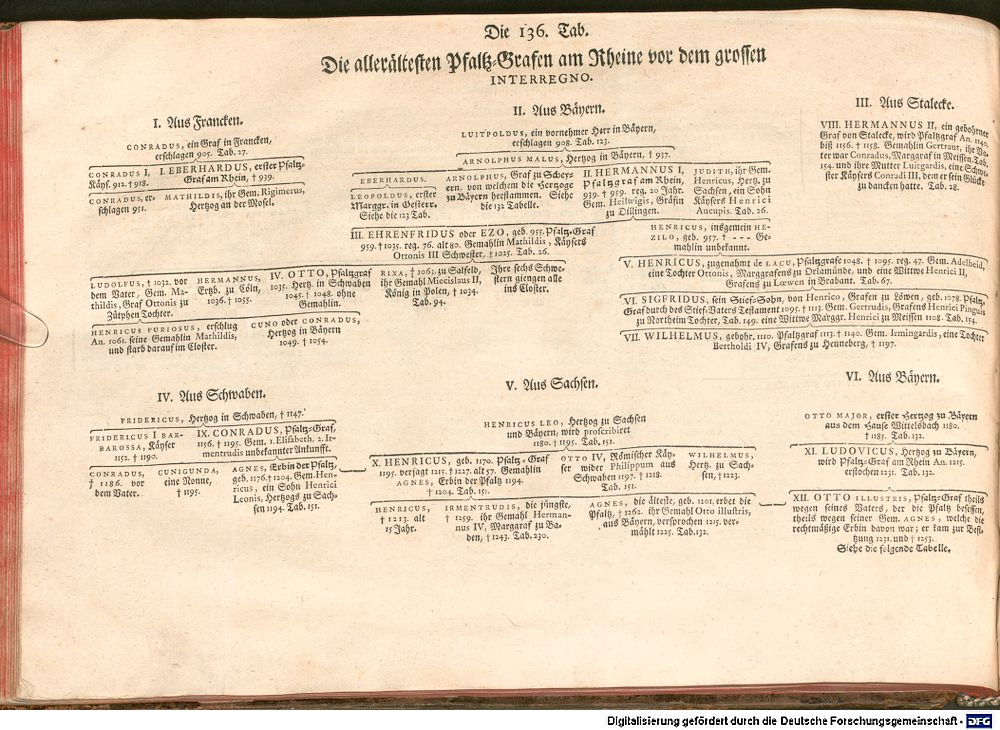 Die 136. Tab.
Die allerältesten Pfaltz-Grafen am Rheine vor dem grossen
INTERREGNO.
I. Aus Francken.
CONRADUS, ein Graf in Francken,
erschlagen 905. Tab. 27.
CONRADUS I,
Käys. 912. † 918.
I. EBERHARDUS, erster Pfaltz-
Graf am Rhein, † 939.
CONRADUS, er-
schlagen 951.
MATHILDIS, ihr Gem. Rigimerus,
Hertzog an der Mosel.
II. Aus Bäyern.
LUITPOLDUS, ein vornehmer Herr in Bäyern,
erschlagen 908. Tab. 123.
ARNOLPHUS MALUS, Hertzog in Bäyern, † 937.
EBERHARDUS.
LEOPOLDUS, erster
Marggr. in Oesterr.
Siehe die 123 Tab.
ARNOLPHUS, Graf zu Scheys
ern, von welchem die Hertzoge
zu Bäyern herstammen. Siehe
die 132 Tabelle.
II. HERMANNUS I,
Pfaltzgraf am Rhein,
939. † 959. reg. 20 Jahr.
Gem. Heilwigis, Gräfin
zu Dillingen.
JUDITH, ihr Gem.
Henricus, Hertz. zu
Sachsen, ein Sohn
Käysers Henrici
Aucupis. Tab. 26.
III. EHRENFRIDUS oder EZO, geb. 955. Pfaltz-Graf
959. † 1035. reg. 76. alt 80. Gemahlin Mathildis, Käysers
Ottonis III Schwester, † 1025. Tab. 26.
HENRICUS, insgemein HE-
ZILO, geb. 957. † - - - Ge-
mahlin unbekannt.
LUDOLFUS, † 1032. vor
dem Vater, Gem. Ma-
thildis, Graf Ottonis zu
Zütphen Tochter.
HERMANNUS,
Ertzb. zu Cöln,
1036. † 1055.
IV. OTTO, Pfaltzgraf
1035. Hertz. in Schwaben
1045. † 1048. ohne
Gemahlin.
RIXA, † 1063. zu Salfeld,
ihr Gemahl Miecislaus II,
König in Polen, † 1034.
Tab. 94.
Ihre sechs Schwe-
stern giengen alle
ins Closter.
HENRICUS FURIOSUS, erschlug
An. 1061. seine Gemahlin Mathildis,
und starb darauf im Closter.
CUNO oder CONRADUS,
Hertzog in Bäyern
1049. † 1054.
V. HENRICUS, zugenahmt de LACU, Pfaltzgrafe 1048. † 1095. reg. 47. Gem. Adelheid,
eine Tochter Ottonis, Marggrafens zu Orlamünde, und eine Wittwe Henrici II,
Grafens zu Lœwen in Brabant. Tab. 67.
VI. SIGFRIDUS, sein Stief-Sohn, von Henrico, Grafen zu Löwen, geb. 1078. Pfaltz-
Graf durch des Stief-Vaters Testament 1095. † 1113. Gem. Gertrudis, Grafens Henrici Pinguis
zu Northeim Tochter, Tab. 149. eine Wittwe Marggr. Henrici zu Meissen 1108. Tab. 154.
VII. WILHELMUS, gebohr. 1110. Pfaltzgraf 1113. † 1140. Gem. Irmingardis, eine Tochter
Bertholdi IV, Grafens zu Henneberg, † 1197.
III. Aus Stalecke.
VIII. HERMANNUS II, ein gebohrner
Graf von Stalecke, wird Pfaltzgraf An. 1140.
biß 1156. † 1158. Gemahlin Gertraut, ihr Va-
ter war Conradus, Marggraf in Meissen, Tab.
154. und ihre Mutter Luitgardis, eine Schwe-
ster Käysers Conradi III, dem er sein Glücke
zu dancken hatte. Tab. 28.
IV. Aus Schwaben.
FRIDERICUS, Hertzog in Schwaben, † 1147.
FRIDERICUS I BAR-
BAROSSA, Käyser
1152. † 1190.
IX. CONRADUS, Pfaltz-Graf,
1156. † 1195. Gem. 1. Elisabeth. 2. Ir-
mentrudis unbekannter Ankunfft.
CONRADUS,
† 1186. vor
dem Vater.
CUNIGUNDA,
eine Nonne,
† 1195.
AGNES, Erbin der Pfaltz,
geb. 1176. † 1204. Gem. Hen-
ricus, ein Sohn Henrici
Leonis, Hertzogs zu Sach-
sen 1194. Tab. 151.
V. Aus Sachsen.
HENRICUS LEO, Hertzog zu Sachsen
und Bäyern, wird proscribiret
1180. † 1195. Tab. 151.
X. HENRICUS, geb. 1170. Pfaltz-Graf
1195. verjagt 1215. † 1227. alt 57. Gemahlin
AGNES, Erbin der Pfaltz 1194.
† 1204. Tab. 151.
OTTO IV, Römischer Käy-
ser wider Philippum aus
Schwaben 1197. † 1218.
Tab. 151.
WILHELMUS,
Hertz. zu Sach-
sen, † 1223.
HENRICUS,
† 1213. alt
15 Jahr.
IRMENTRUDIS, die jüngste,
† 1259. ihr Gemahl Herman-
nus IV, Margraf zu Ba-
den, † 1243. Tab. 230.
AGNES, die älteste, geb. 1201. erbet die
Pfaltz, † 1262. ihr Gemahl Otto illustris,
aus Bäyern, versprochen 1215. ver-
mählt 1225. Tab. 132.
VI. Aus Bäyern.
OTTO MAJOR, erster Hertzog zu Bäyern
aus dem Hause Wittelsbach 1180.
† 1185. Tab. 132.
XI. LUDOVICUS, Hertzog zu Bäyern,
wird Pfaltz-Graf am Rhein An. 1215.
erstochen 1231. Tab. 132.
XII. OTTO ILLUSTRIS, Pfaltz-Graf theils
wegen seines Vaters, der die Pfaltz besessen,
theils wegen seiner Gem. AGNES, welche die
rechtmäßige Erbin davon war; er kam zur Besi-
tzung 1231. und † 1253.
Siehe die folgende Tabelle.
Digitalisierung gefördert durch die Deutsche Forschungsgemeinschaft - DFG